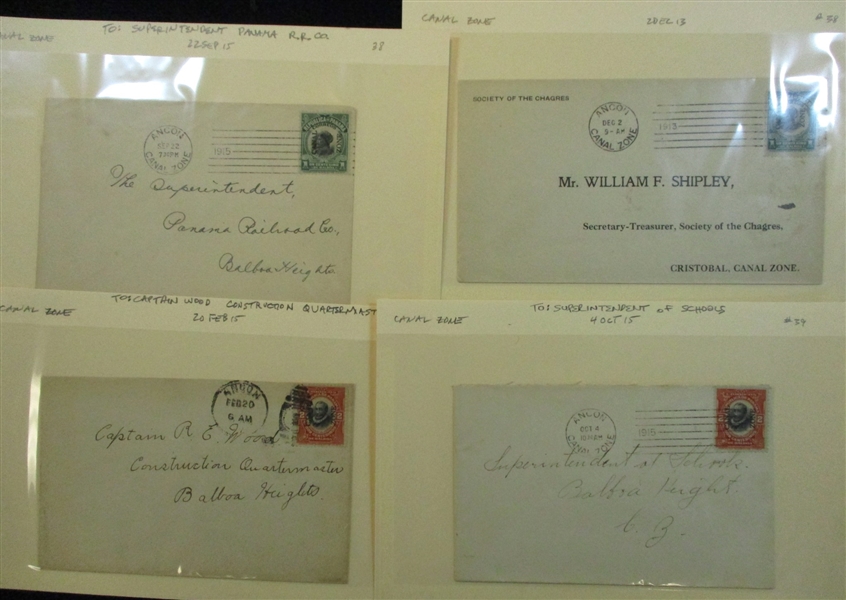 CANAL ZONE
TO: SUPERINTENDENT PANAMA R.R. CO.
22 SEP 15
38
ANCON
SEP 22
7-PM
CANAL ZONE
1915
The Superintendent,
Panama Railroad Co.,
Balboa Heights
CANAL ZONE
2 DEC 13
#38
SOCIETY OF THE CHAGRES
ANCON
DEC 2
5-AM
CANAL ZONE
1913
Mr. WILLIAM F. SHIPLEY,
Secretary-Treasurer, Society of the Chagres,
CRISTOBAL, CANAL ZONE.
CANAL ZONE
TO: CAPTAIN WOOD CONSTRUCTION QUARTERMAST
20 FEB 15
ANCON
FEB 20
6 AM
Captain R. E. Wood
Construction Quartermaster
Balboa Heights.
CANAL ZONE
TO: SUPERINTENDENT OF SCHOOLS
4 OCT 15
#39
ANCON
OCT 4
CANAL ZONE
1915
Superintendent of Schools.
Balboa Height.
C. Z.